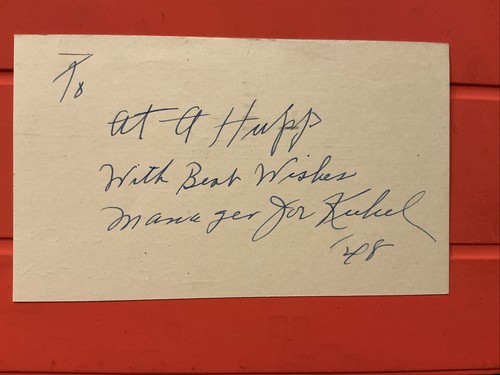 To
At A Hupp
With Best Wishes
Manager Joe Kuhel
'48